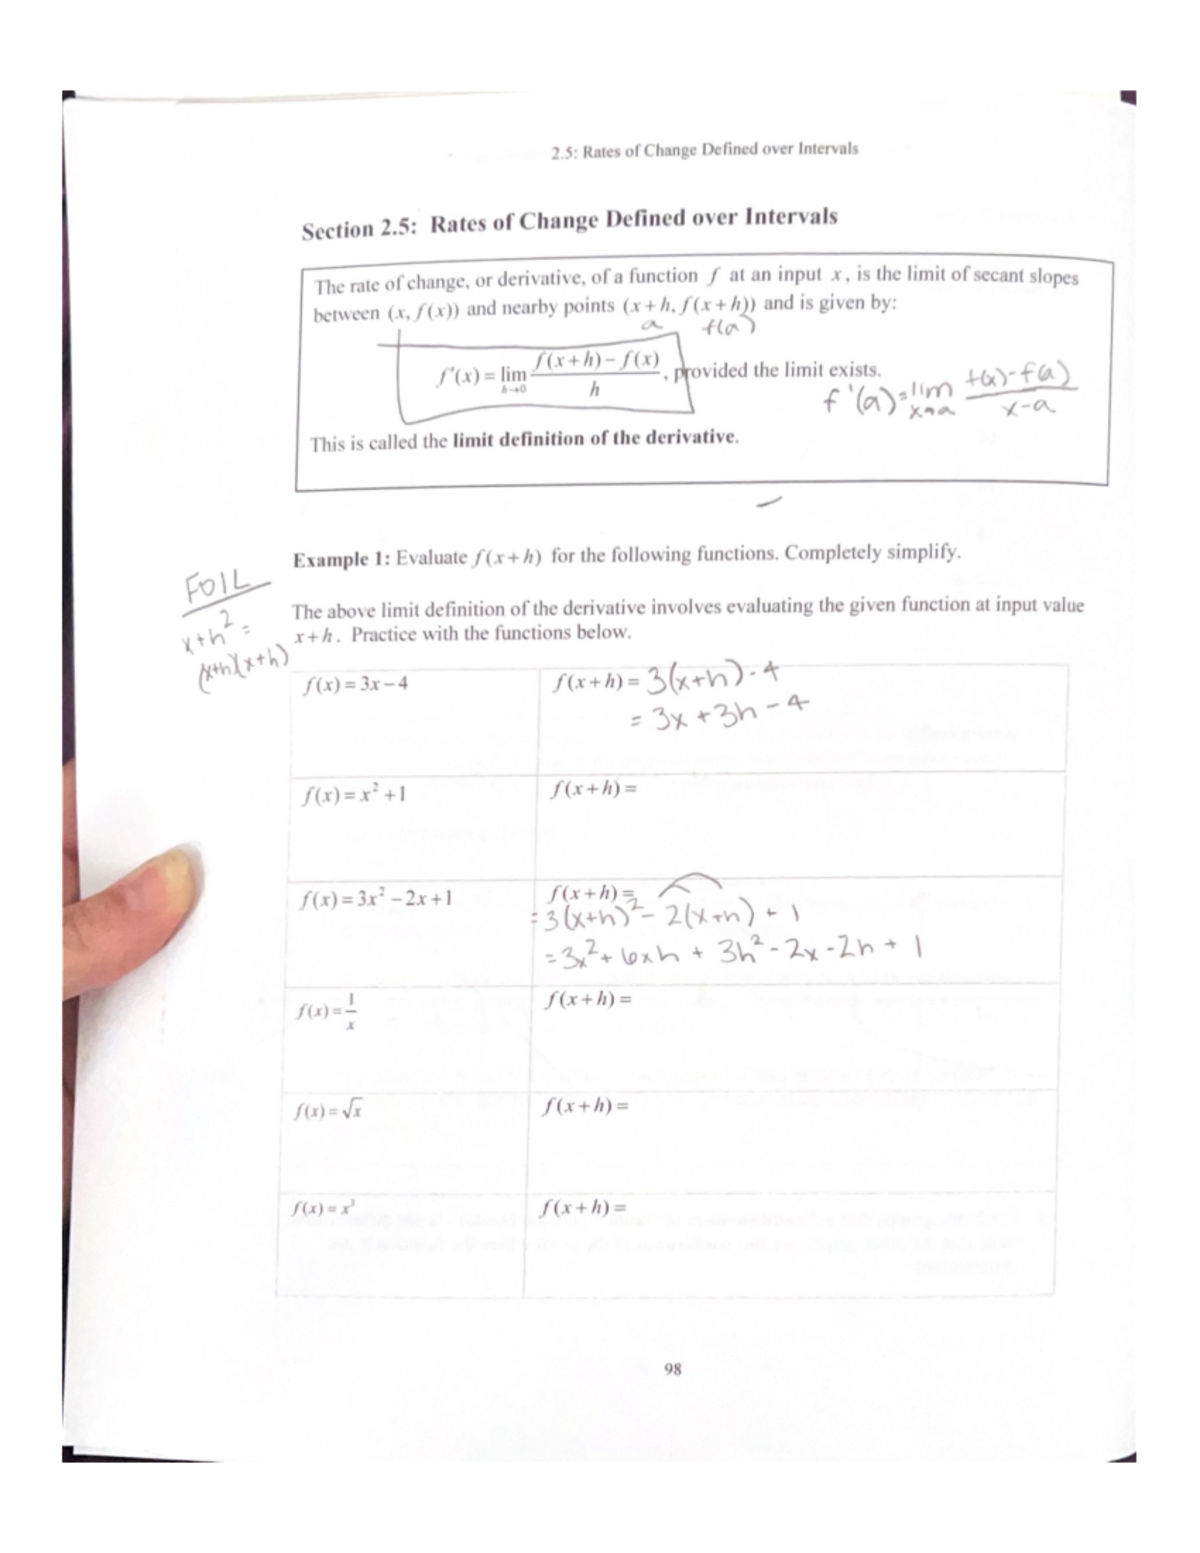 2.5: Rates of Change Defined over Intervals
Section 2.5: Rates of Change Defined over Intervals
The rate of change, or derivative, of a function f at an input x, is the limit of secant slopes
between (x, f(x)) and nearby points (x+h, f(x+h)) and is given by:
a f(a)
f'(x) = lim h→0 f(x+h) − f(x) / h , provided the limit exists.
f'(a) = lim x→a f(x) - f(a) / x-a
This is called the limit definition of the derivative.
Example 1: Evaluate f(x+h) for the following functions. Completely simplify.
FOIL
x+h² =
(x+h)(x+h)
The above limit definition of the derivative involves evaluating the given function at input value
x+h. Practice with the functions below.
f(x) = 3x−4 f(x+h) = 3(x+h)-4
= 3x+3h-4
f(x) = x² +1 f(x+h) =
f(x) = 3x² −2x+1 f(x+h) =
= 3(x+h)² - 2(x+h) + 1
= 3x² + 6xh + 3h² - 2x - 2h + 1
f(x) = 1/x f(x+h) =
f(x) = √x f(x+h) =
f(x) = x³ f(x+h) =
98